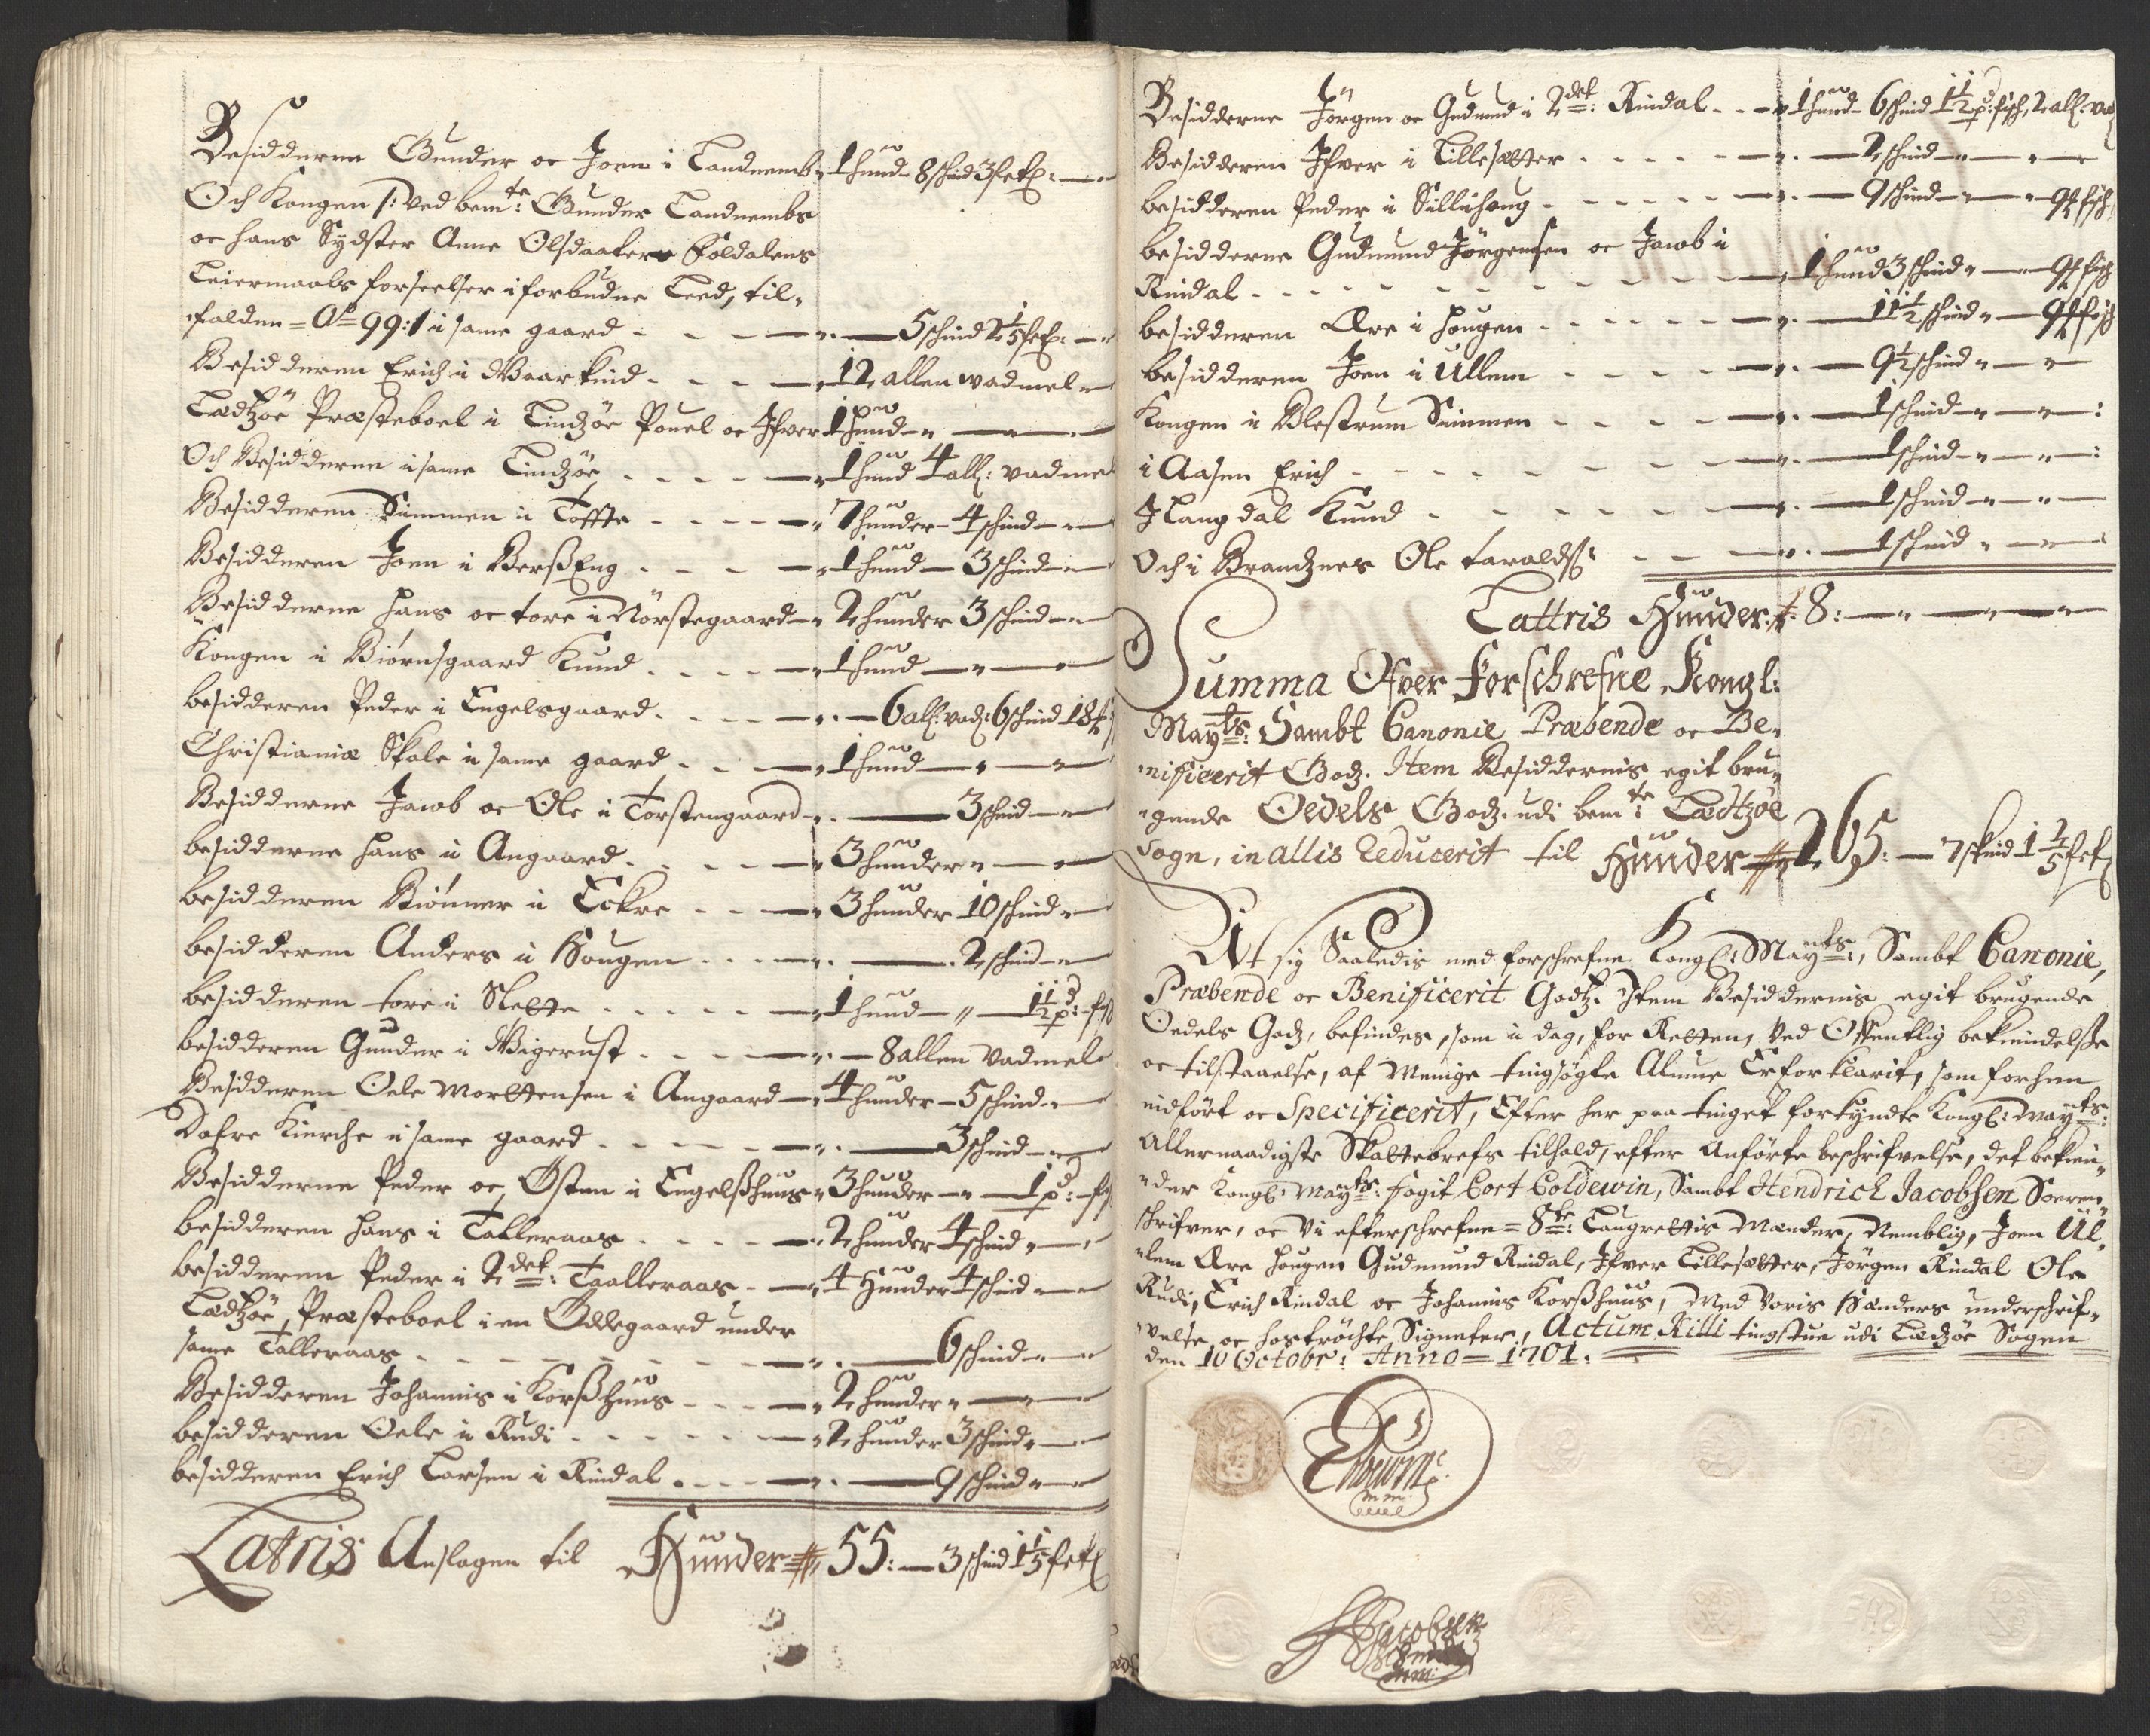 Besidderen Gunder oc Joen i Landnemb 1 hund 8 schind 3 fetl:
Och Kongen /: Ved bemte: Gunder Landnembs
oc hans Sydster Anne Olsdaatter Foldalens
Leiermaals forseelser i forbudne Leed, til-
falden = Ao 99 :/ i same gaard - - - 5 schind 2 1/5 fetl:
Besidderen Erich i Waarkind - - - 12 allen wadmel
Lædtzøe Præsteboel i Lindzøe Pouel oc Ifver 1 hund
Och Besidderne i same Lindzøe - - - 1 hund 4 all: vadme
Besidderen Simmen i Toffte - - - 7 hunder 4 schind
Besidderen Joen i Berßeng - - - 1 hund 3 schind
Besidderne Hans oc tore i Nörstegaard 2 hunder 3 schind
Kongen i Biörnsgaard Knud - - - 1 hund
besidderen Peder i Engelsgaard - - - 6 all: vad: 6 schind 18 f
Christianiæ Skole i same gaard - - - 1 hund
Besidderne Jacob oc Ole i Torstengaard 3 schind
besidderne Hans i Angaard - - - 3 hunder
besidderen Biönner i Eckre - - - 3 hunder 10 schind
besidderen Anders i Hougen - - - 2 schind
besidderen tore i Slette - - - 1 hund 1 1/2 pd: fis
besidderen Gunder i Wigerust - - - 8 allen Vadmel
Besidderen Oele Morttensen i Angaard 4 hunder 5 schind
Dofre Kierche i same gaard - - - 3 schind
Besidderne Peder oc Östen i Engelßhuus 3 hunder 1 pd: fis
besidderen Hans i Talleraas - - - 2 hunder 4 schind
besidderen Peder i 2det: Taalleraas - 4 Hunder 4 schind
Lædtzøe, Præsteboel i en Ödegaard under
same Talleraas - - - 6 schind
Besidderen Johannis i Korßhuus - - - 2 hunder
besidderen Oele i Rudi - - - 2 hunder 3 schind
besidderen Erich Larsen i Rindal - - - 9 schind
Latris Anslagen til Hunder 55: 3 schind 1 1/5 fetl
Besidderne Jörgen oc Gudmund i 2det: Rindal - - 1 hund 6 schind 1 1/2 pd: fisch, 2 all: vad
Besidderen Ifver i Lillesetter - - - 2 schind
besidderen Peder i Sillihoug - - - 9 schind 9 f fisch
besidderne Gudmund Jörgensen oc Jacob i
Rindal - - - 1 hund 3 schind 9 f fisch
besidderen Are i Hougen - - - 11 1/2 schind 9 f fisch
besidderen Joen i Ullem - - - 9 1/2 schind
Kongen i Blestrum Simmen - - - 1 schind
i Aasen Erich - - - 1 schind
I Langdal Knud - - - 1 schind
Och i Brandznes Ole taralds: - - 1 schind
Lattris Hunder 8:
Summa Ofver Forschrefne Kongl:
Mayts: Sambt Canonie Præbende oc Be-
nificerit Godz. Item Besiddernis egit bru-
gende Oedels Godz. udi bemte: Lædtzöe
Sogn, in allis Reducerit til Hunder 265: 7 skind 1 2/5 fetl
At sig Saaledis med forschrefne Kongl: Mayts:, Sambt Canonie,
Præbende oc Benificerit Godtz. Item Besiddernis egit brugende
Oedels Godz, befindes, som i dag, for Retten, Ved Offentlig bekiendelße
oc tilstaaelse, af Menige tingsögte Almue Er forklarit, som forhen
indfört oc Specificerit, Efter her paa tinget forkyndte Kongl: Mayts:
Allernaadigste Skattebrefs tilhold, efter Anförte beskrifvelse, det bekien-
der Kongl: Mayts: fogit Cort Coldewin, Sambt Hendrich Jacobsen Soeren-
schrifver, oc Vi efterschrefne = 8te: Laugrettis Mænder, Nemblig, Joen Ul-
lem Are Hougen Gudmund Rindal, Ifver Lillesetter, Jörgen Rindal Ole
Rudi, Erich Rindal oc Johannis Korßhuus, Med Voris Hænders underschrif-
velse oc hoströchte Signeter, Actum Killi tingstue udi Lædzöe Sogen
den 10 Octobr: Anno = 1701.
HJacobsen